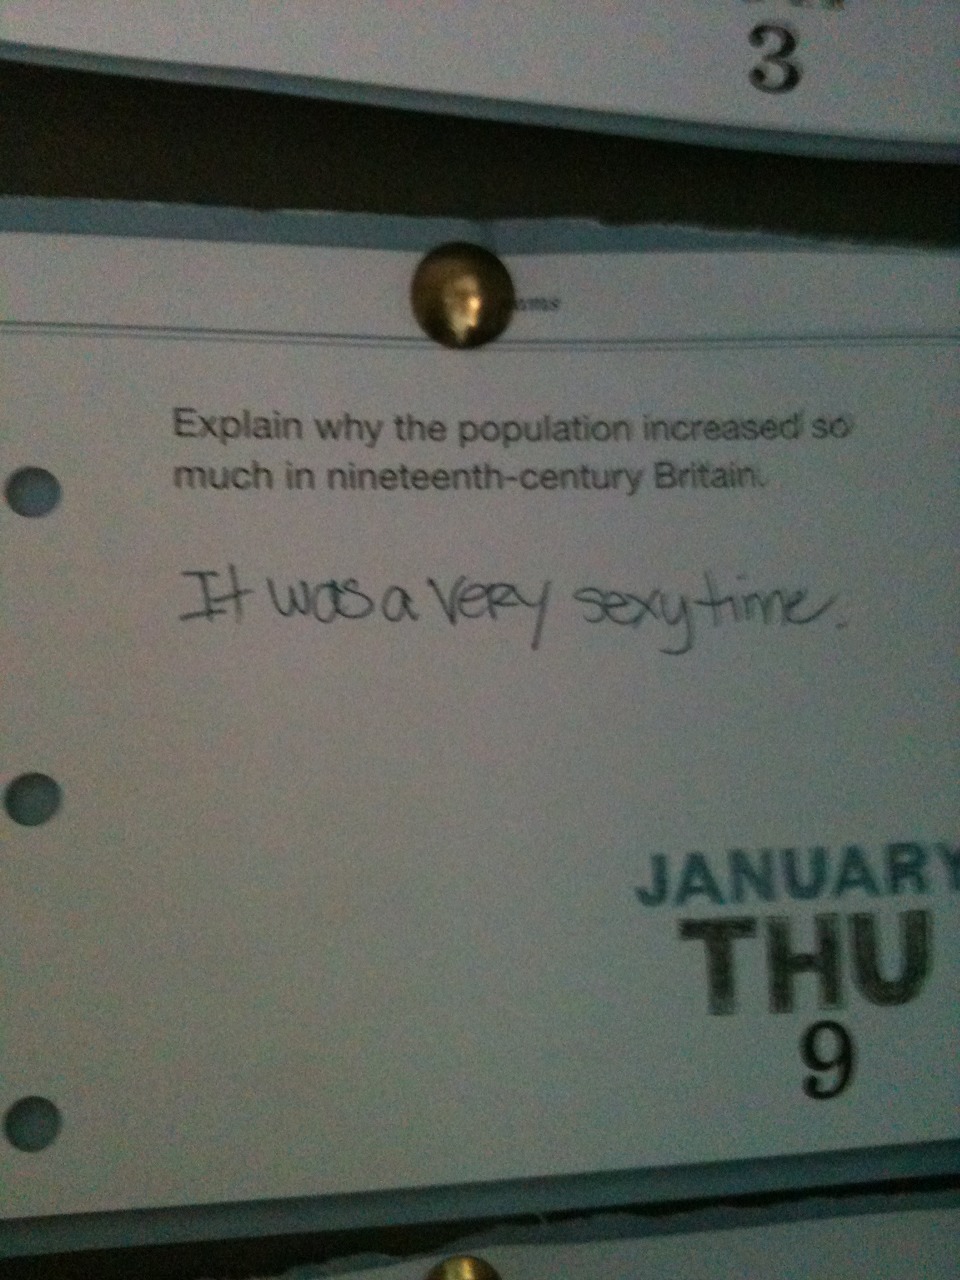 3
Explain why the population increased so
much in nineteenth-century Britain.
It was a very sexy time.
JANUARY
THU
9